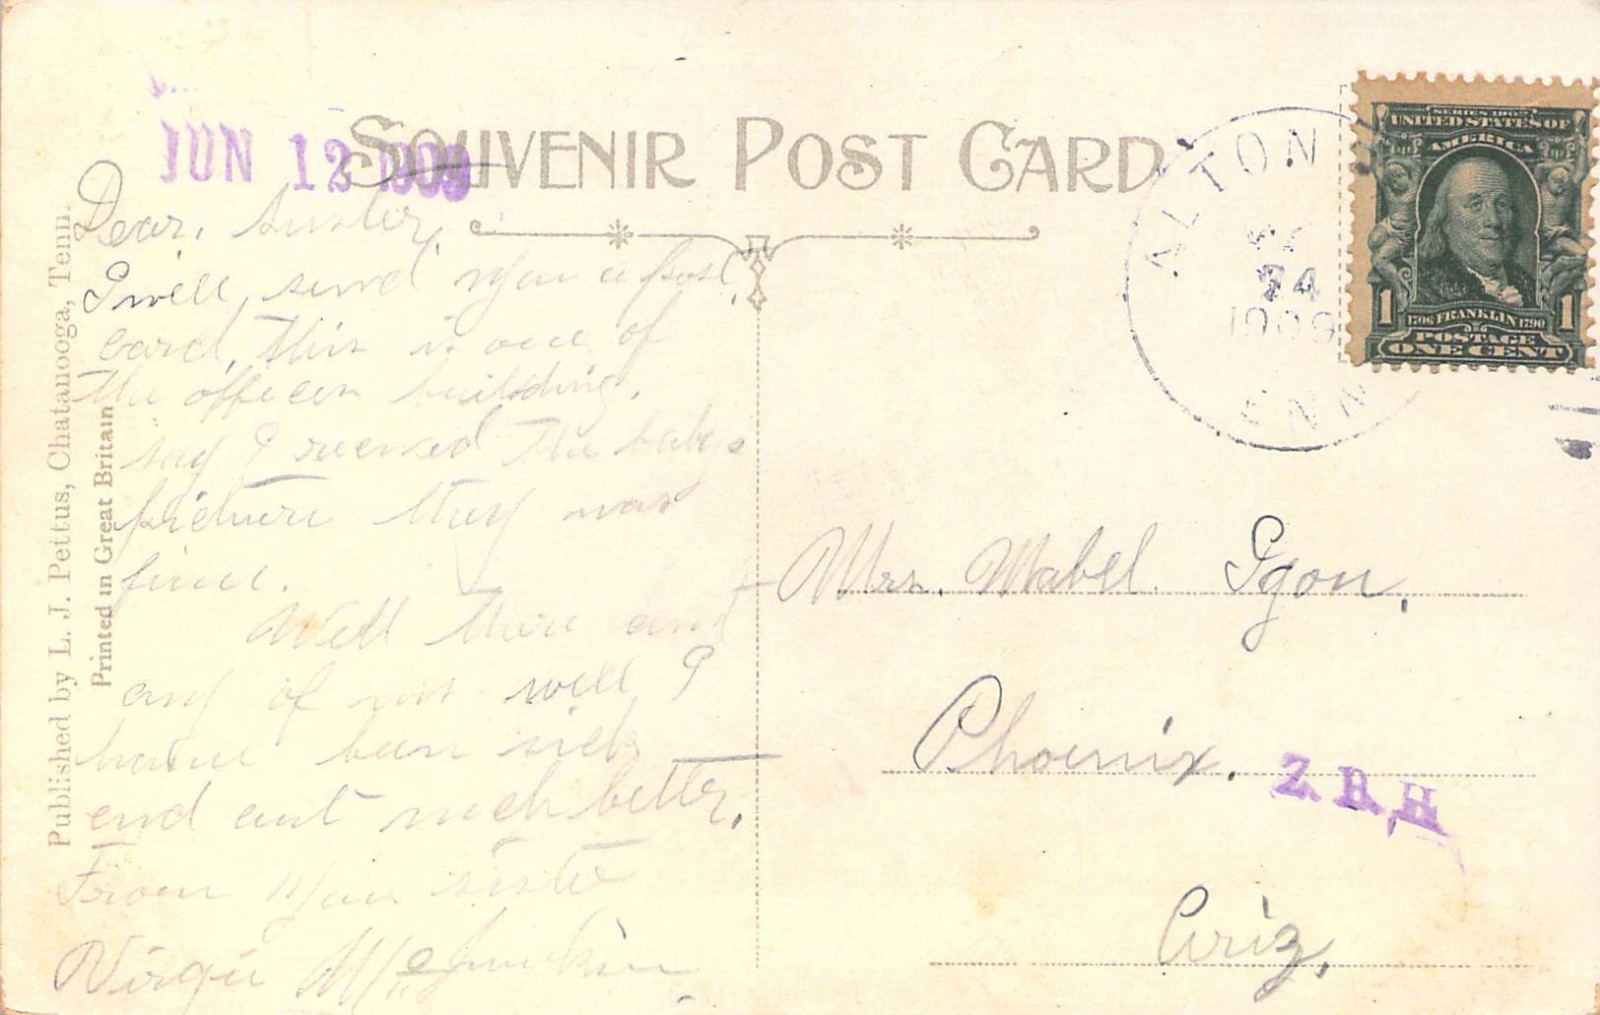 JUN 12 1909
SOUVENIR POST CARD
ALTON
24
1909
ENN
SERIES 1902
UNITED STATES OF
AMERICA
1 1706 FRANKLIN 1790 1
POSTAGE
ONE CENT
Published by L. J. Pettus, Chatanooga, Tenn.
Printed in Great Britain
Dear, suster,
I will, send you a post
card, this is one of
the officer building.
say I reieved the babys
picture they was
fine.
Well there and
any of us well I
hame been sick
end ant much better,
From your siste
Virgie
Mrs. Mabel. Igou,
Phoenix.
Z. B. H
Ariz,